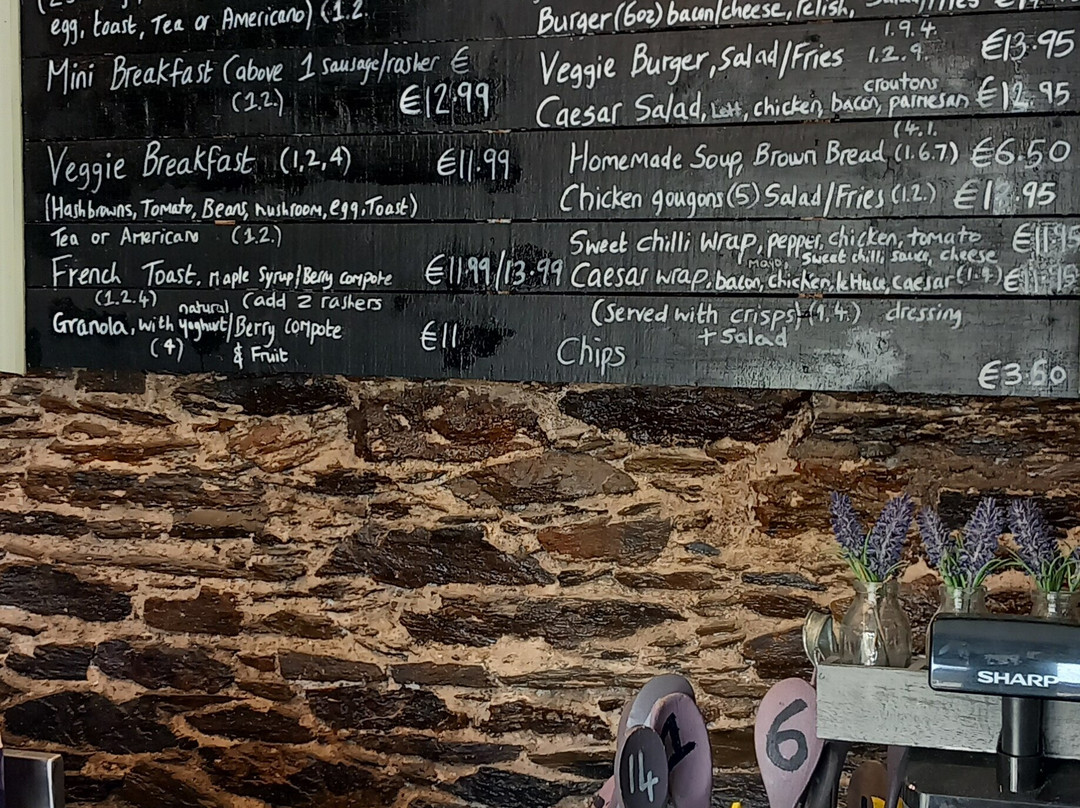 egg, toast, Tea or Americano) (1.2.
Mini Breakfast (above 1 sausage/rasher €
(1.2.) €12.99
Veggie Breakfast (1,2,4) €11.99
(Hashbrowns, Tomato, Beans, mushroom, egg, Toast)
Tea or Americano (1.2.)
French Toast, Maple Syrup/Berry compote €11.99/13.99
(1.2.4) (add 2 rashers
natural
Granola, with yoghurt/Berry compote €11
(4) & Fruit
Burger (6oz) bacon/cheese, relish,
1.9.4.
Veggie Burger, Salad/Fries 1.2.9. €13.95
croutons
Caesar Salad, chicken, bacon, parmesan €12.95
(4.1.
Homemade Soup, Brown Bread (1.6.7) €6.50
Chicken gougons (5) Salad/Fries (1.2.)
Sweet chilli wrap, pepper, chicken, tomato
Mayo, Sweet chill, sauce, cheese
Caesar wrap, bacon, chicken, lettuce, caesar
(Served with crisps) (1,4.) dressing
+ Salad
Chips
€3.50
SHARP
1
6
14